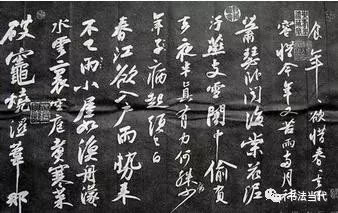 食年〻欲惜春〻去不
容惜今年又苦雨兩月
蕭瑟卧聞海棠花泥
汙燕支雪闇中偷負
去夜半真有力何殊少
年子病起須已白
春江欲入户雨勢来
不已雨小屋如漁舟濛
水雲裏空庖煑寒菜
破竈燒濕葦那
书法当代